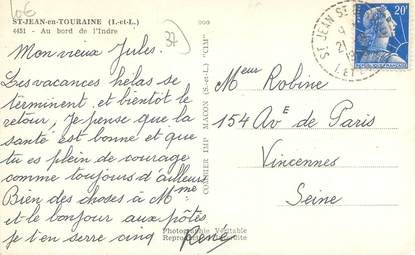 10€
ST-JEAN-en-TOURAINE (I.-et-L.)
4451 - Au bord de l'Indre
37
Mon vieux Jules.
Les vacances hélas se
terminent et bientôt le
retour, Je pense que la
santé est bonne et que
tu es plein de courage
comme toujours d'ailleurs
Bien des choses à Mme
et le bonjour aux pôtes
je t'en serre cinq
René
Photographie Véritable
COMBIER IMP. MACON (S.-et-L.) "CIM"
Meur Robine
154 Ave de Paris
Vincennes
Seine
ST JEAN ST
20F